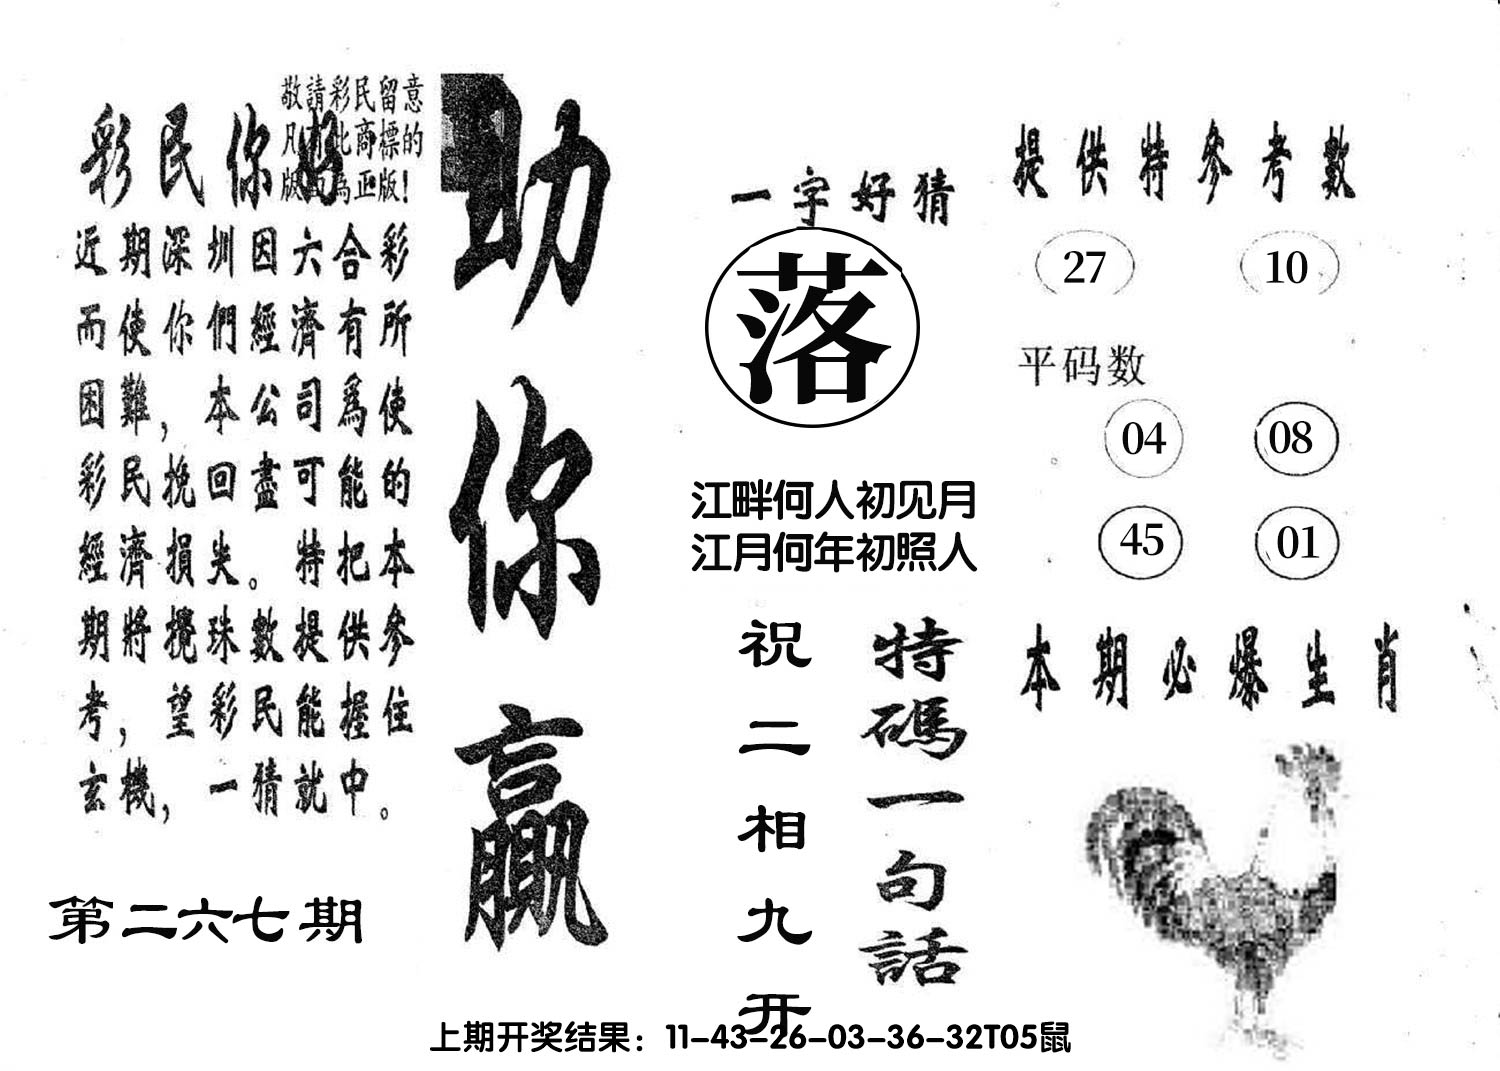 敬請彩民留意
凡有此商標的
版面為正版！
彩民你好
近期深圳因六合彩
而使你們經濟有所
困難，本公司爲使
彩民挽回盡可能的
經濟損失。特把本
期將攪珠數提供參
考，望彩民能握住
玄機，一猜就中。
第二六七期
助你贏
一字好猜
落
江畔何人初见月
江月何年初照人
特碼一句話
祝二相九开
提供特參考數
27 10
平码数
04 08
45 01
本期必爆生肖
上期开奖结果：11-43-26-03-36-32T05鼠